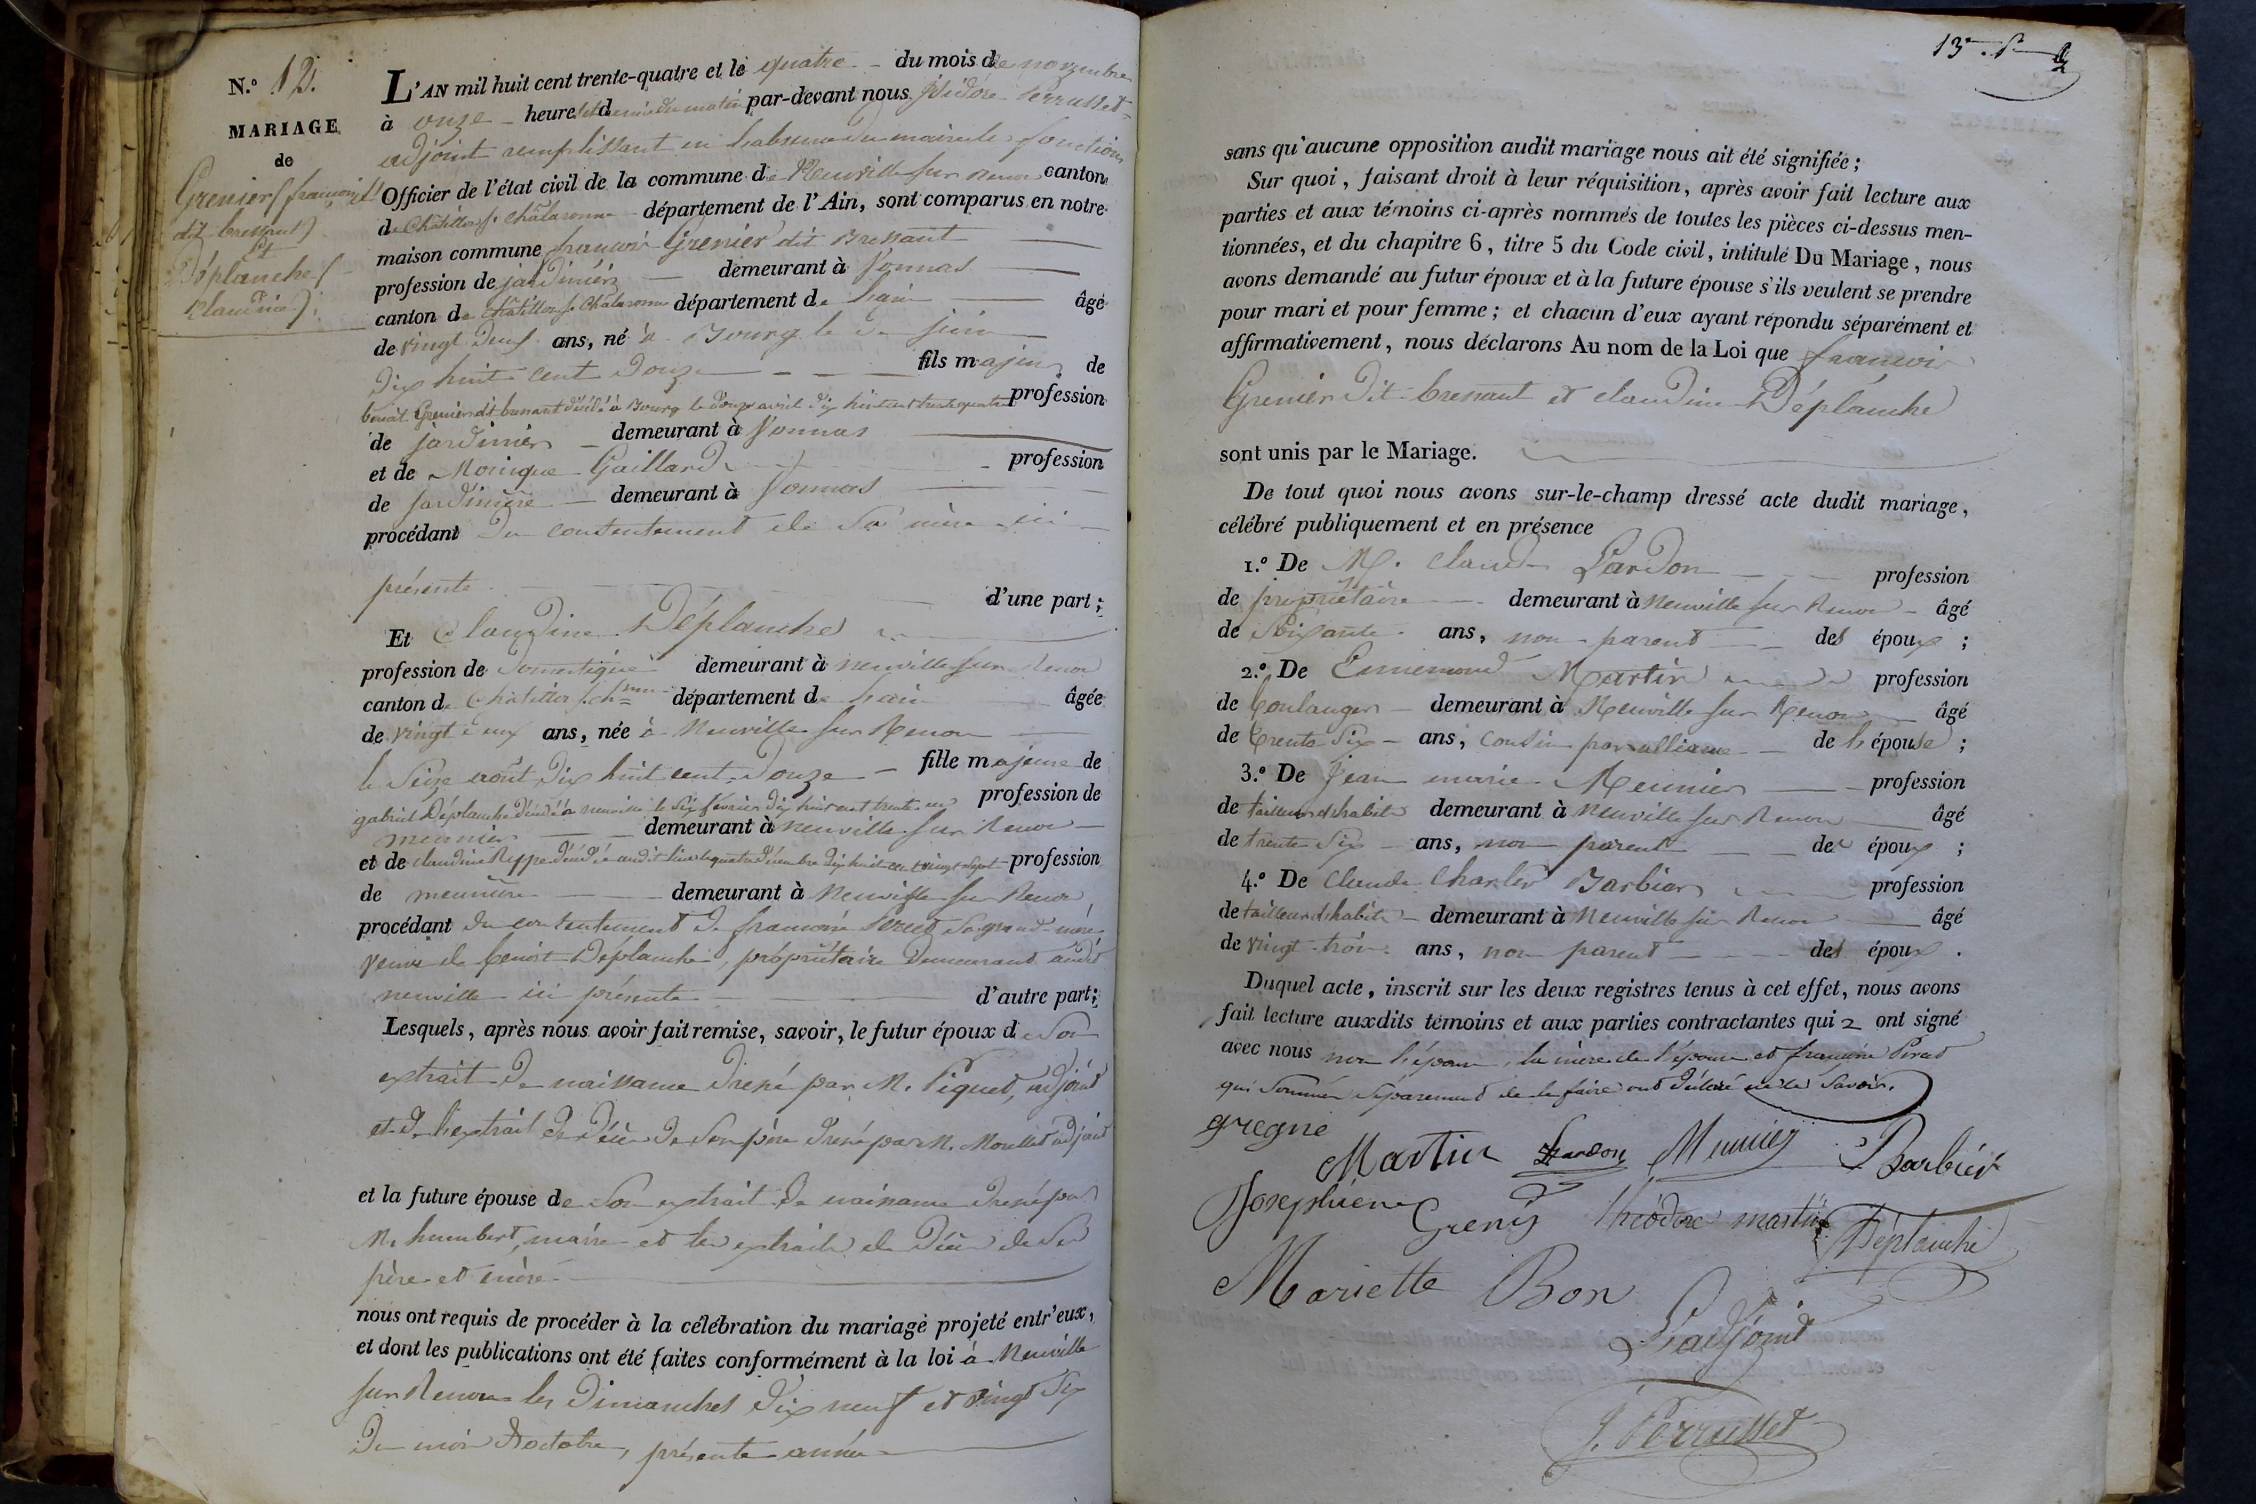 N.º 12.
MARIAGE
de
Grenier (françois)
dit bressant)
Et
Déplanche (
Claudine).
L'AN mil huit cent trente-quatre et le quatre du mois de novembre
à onze heures et demie du matin par-devant nous isidore Perrusset
adjoint remplissant en l'absence du maire les fonctions
Officier de l'état civil de la commune de Neuville sur Renon canton
de Châtillon s. Chalaronne département de l'Ain, sont comparus en notre
maison commune françois Grenier dit Bressant
profession de jardinier demeurant à Vonnas
canton de Châtillon s. Chalaronne département de l'ain âgé
de vingt deux ans, né à Bourg le juin
dix huit cent douze fils majeur de
benoit Grenier dit bressant décédé à Bourg le douze avril dix huit cent trente quatre profession
de jardinier demeurant à Vonnas
et de Monique Gaillard profession
de jardinière demeurant à Vonnas
procédant du consentement de sa mère ici
présente d'une part;
Et Claudine Déplanche
profession de domestique demeurant à neuville sur Renon
canton de Châtillon s. ch.nne département de l'ain âgée
de vingt deux ans, née à Neuville sur Renon
le seize août dix huit cent douze fille majeure de
gabriel Déplanche décédé à neuville le six février dix huit cent trente un profession de
meunier demeurant à neuville sur Renon
et de claudine Reppe décédée audit lieu le quatre décembre dix huit cent vingt sept profession
de meunière demeurant à Neuville sur Renon
procédant du consentement de françoise Perret sa grand mère
veuve de benoit Déplanche, propriétaire demeurant audit
neuville ici présente d'autre part;
Lesquels, après nous avoir fait remise, savoir, le futur époux de son
extrait de naissance dressé par M. Piquet, adjoint
et de l'extrait de décès de son père dressé par M. Morellet adjoint
et la future épouse de son extrait de naissance dressé par
M. humbert, maire et les extraits de décès de ses
père et mère
nous ont requis de procéder à la célébration du mariage projeté entr'eux,
et dont les publications ont été faites conformément à la loi à Neuville
sur Renon les dimanches dix neuf et vingt six
du mois d'octobre, présente année
13e
sans qu'aucune opposition audit mariage nous ait été signifiée;
Sur quoi, faisant droit à leur réquisition, après avoir fait lecture aux
parties et aux témoins ci-après nommés de toutes les pièces ci-dessus men-
tionnées, et du chapitre 6, titre 5 du Code civil, intitulé Du Mariage, nous
avons demandé au futur époux et à la future épouse s'ils veulent se prendre
pour mari et pour femme; et chacun d'eux ayant répondu séparément et
affirmativement, nous déclarons Au nom de la Loi que françois
Grenier dit bressant et claudine Déplanche
sont unis par le Mariage.
De tout quoi nous avons sur-le-champ dressé acte dudit mariage,
célébré publiquement et en présence
1.º De M. claude Lardon profession
de propriétaire demeurant à neuville sur Renon âgé
de soixante ans, non parent des époux;
2.º De Ennemond Martin profession
de boulanger demeurant à Neuville sur Renon âgé
de trente six ans, cousin par alliance de l'épouse;
3.º De jean marie Meunier profession
de tailleur d'habits demeurant à Neuville sur Renon âgé
de trente six ans, non parent des époux;
4.º De claude Charles Barbier profession
de tailleur d'habits demeurant à Neuville sur Renon âgé
de vingt trois ans, non parent des époux.
Duquel acte, inscrit sur les deux registres tenus à cet effet, nous avons
fait lecture auxdits témoins et aux parties contractantes qui ont signé
avec nous non l'épouse, la mère de l'époux et françoise Perret
qui sommés séparément de le faire ont déclaré ne le savoir.
gregne
Martin Lardon Meunier Barbier
Josephiene Grenis théodore martin Déplanche
Mariette Bon
L'adjoint
J. Perrusset